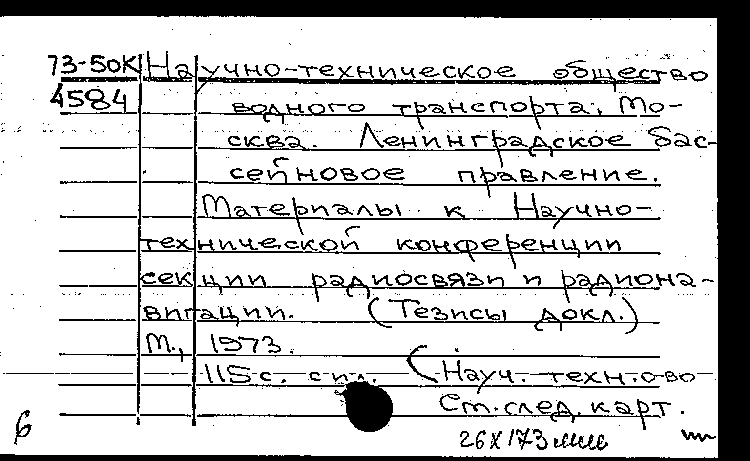 73-50К Научно-техническое общество
4584 водного транспорта. Мо-
сква. Ленинградское бас-
сейновое правление.
Материалы к Научно-
технической конференции
секции радиосвязи и радиона-
вигации. (Тезисы докл.)
М., 1973.
115 с. с ил. (Науч. техн. о-во
См. след. карт.
6